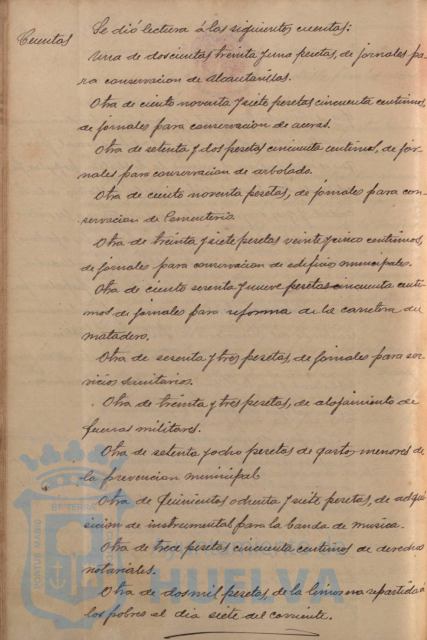 Cuentas
Se dió lectura á las siguientes cuentas:
Una de doscientas treinta y una pesetas, de jornales pa-
ra conservacion de alcantarillas.
Otra de ciento noventa y siete pesetas cincuenta centimos,
de jornales para conservacion de aceras.
Otra de setenta y dos pesetas cincuenta centimos, de jor-
nales para conservacion de arbolado.
Otra de ciento noventa pesetas, de jornales para con-
servacion de Cementerio.
Otra de treinta y siete pesetas veinte y cinco centimos,
de jornales para conservacion de edificios municipales.
Otra de ciento y nueve pesetas cincuenta centi-
mos de jornales para reforma de la carretera del
matadero.
Otra de y tres pesetas, de jornales para ser-
vicios sanitarios.
Otra de treinta y tres pesetas, de alojamiento de
fuerzas militares.
Otra de setenta y ocho pesetas de gastos menores de
la prevencion municipal.
Otra de quinientas ochenta y siete pesetas, de adqui-
sicion de instrumental para la banda de musica.
Otra de trece pesetas cincuenta centimos de derechos
notariales.
Otra de dos mil pesetas de la limosna repartida á
los pobres el dia siete del corriente.
Ayuntamiento de
HUELVA
PORTUS MARIS
ET TERRAE